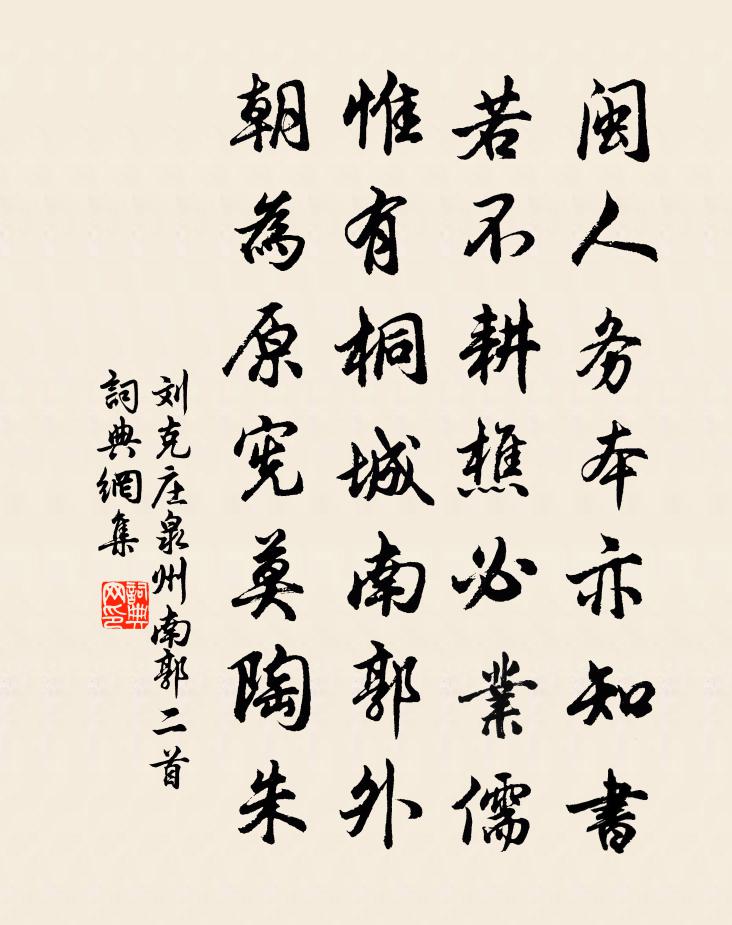 闽人务本亦知書
若不耕樵必業儒
惟有桐城南郭外
朝為原宪莫陶朱
刘克庄泉州南郭二首
詞典網集
詞典
网印